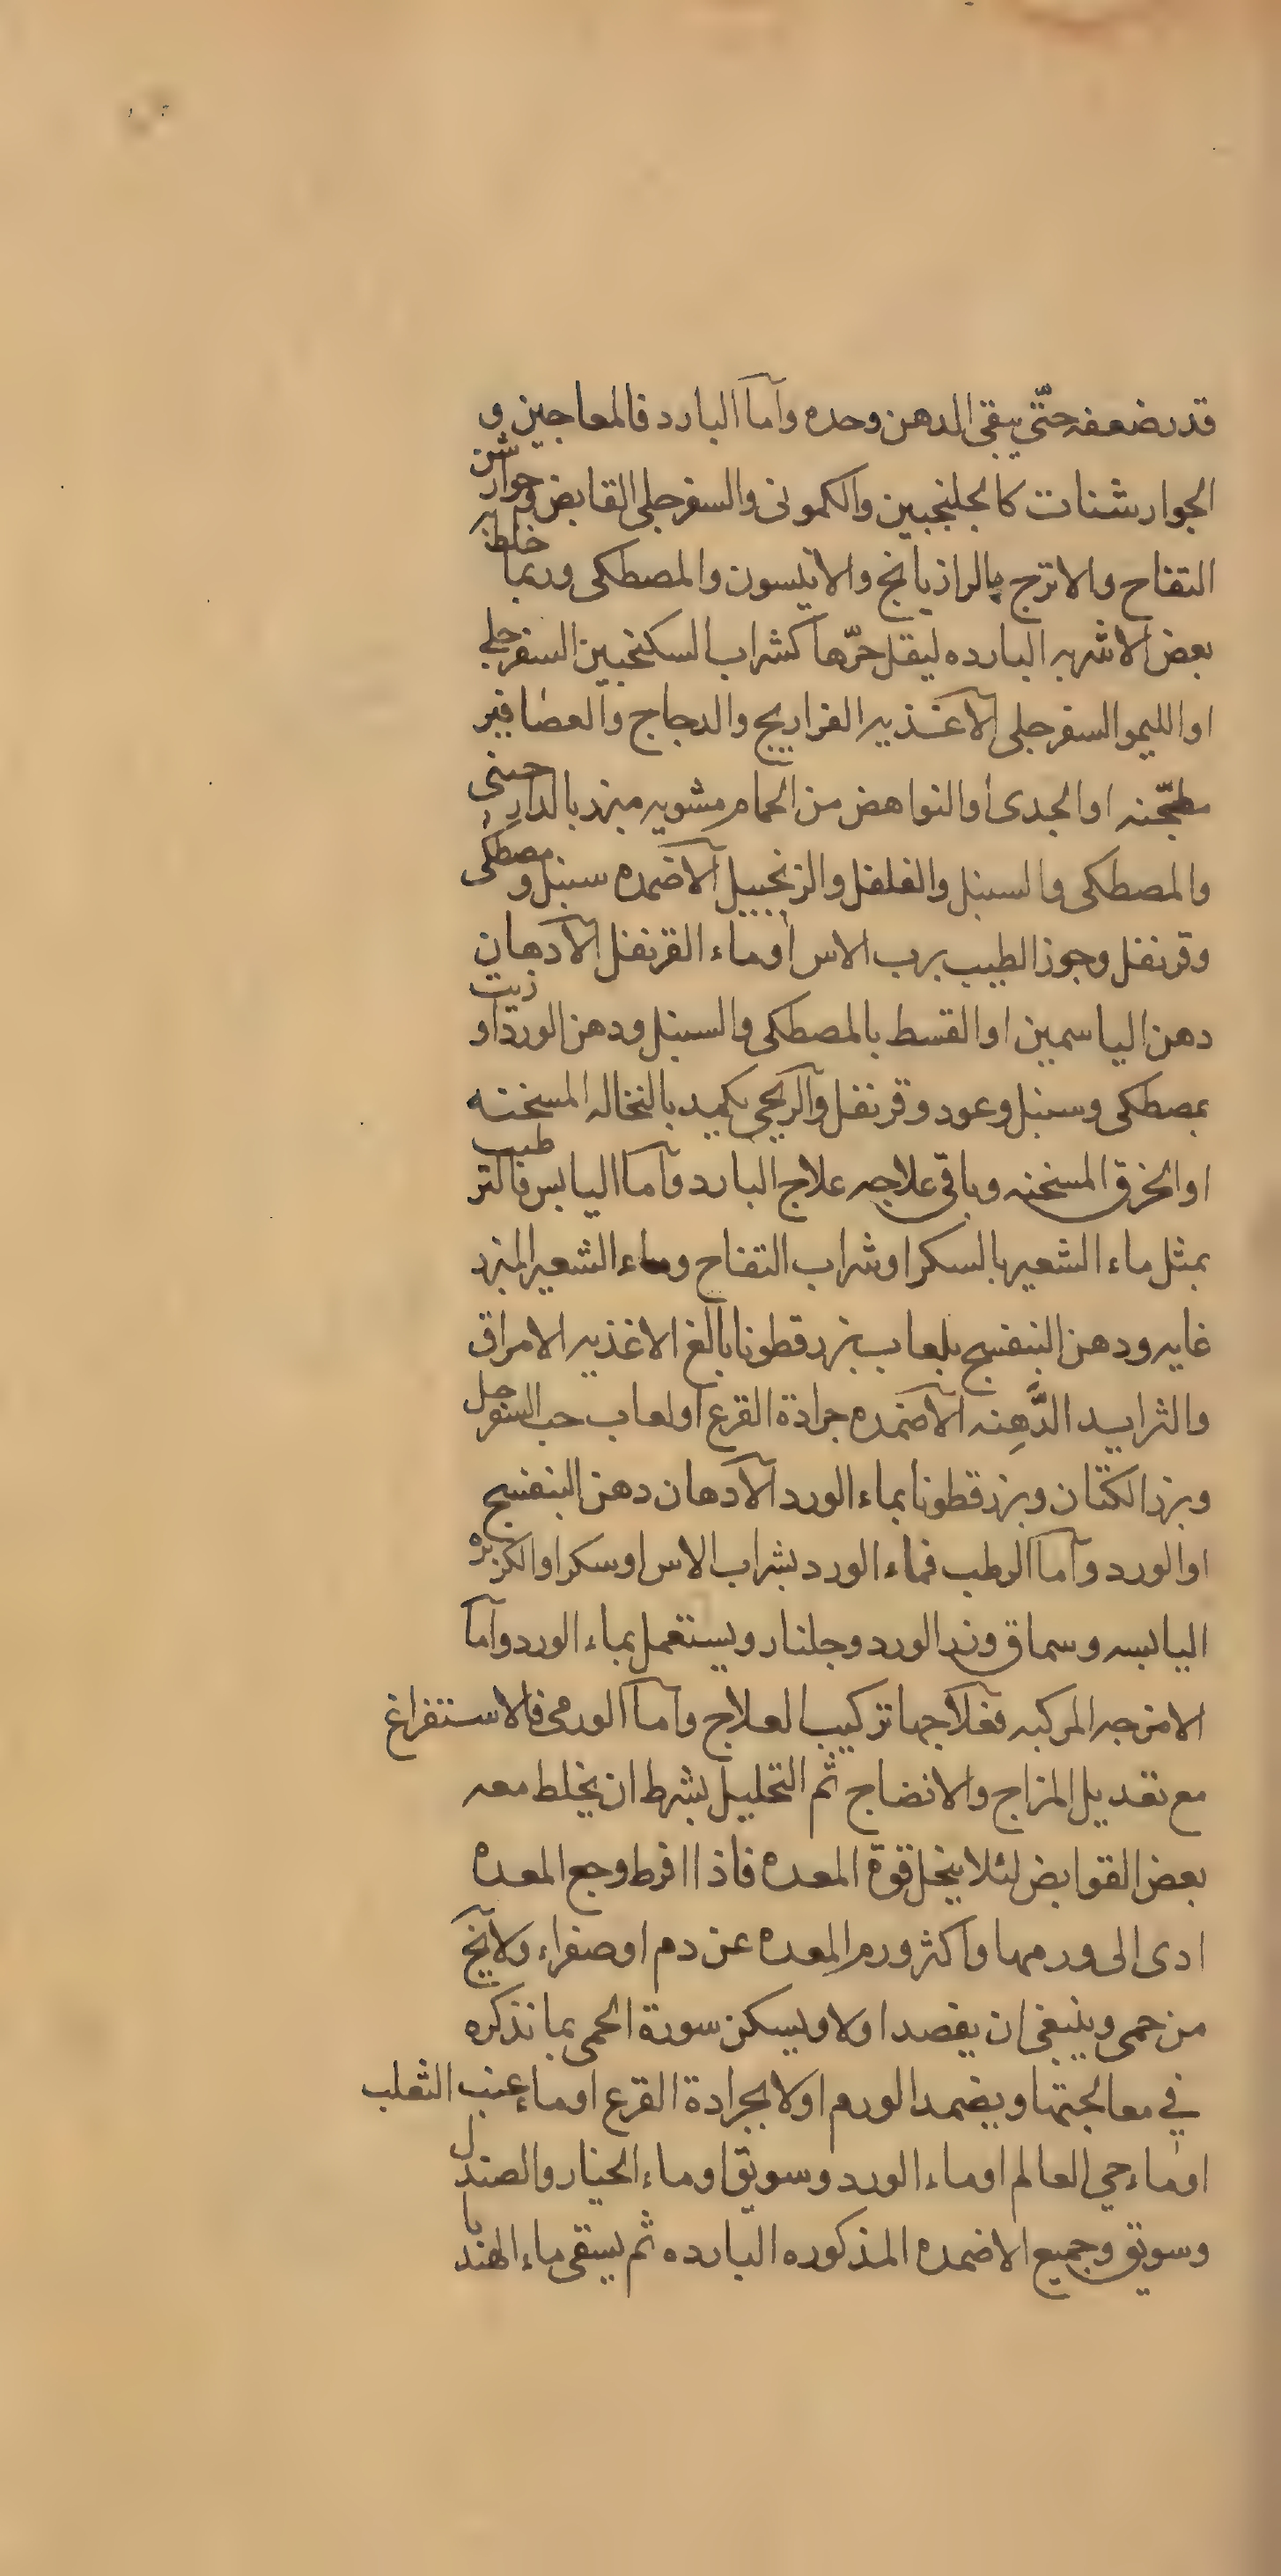 قدر ضعفه حتّى يبقى الدهن وحده وآما البارد فالمعاجين و
الجوارشنات كالجلنجبين والكمونى والسفرجلى القابض وجوارشن
التفاح والاترج بالرازيانج والانيسون والمصطكى وربما خلط به
بعض الاشربه البارده ليقل حرّها كشراب السكنجبين السفرجلي
او الليمو السفرجلى الآغذيه الفراريج والدجاج والعصافير
مطجّنه او الجدى او النواهض من الحمام مشويه مبزر بالدارصينى
والمصطكى والسنبل والفلفل والزنجبيل الآضمده سنبل ومصطكى
وقرنفل وجوز الطيب برب الاس او ماء القرنفل الآدهان
دهن الياسمين او القسط بالمصطكى والسنبل ودهن الورد او زيت
بمصطكى وسنبل وعود وقرنفل وآلريحي يكمد بالنخاله المسخنه
او الخرق المسخنه وباقي علاجه علاج البارد وآما اليابس فالترطيب
بمثل ماء الشعير بالسكر او شراب التفاح وماء الشعير المبزر
غايه ودهن البنفسج بلعاب بزر قطونا بالغ الاغذيه الامراق
والثرايد الدَّهِنه الآضمده جرادة القرع او لعاب حب السفرجل
وبزر الكتان وبزر قطونا بماء الورد الآدهان دهن البنفسج
او الورد وآما الرطب فماء الورد بشراب الاس او سكر او الكزبره
اليابسه وسماق وزر الورد وجلنار ويستعمل بماء الورد وآما
الامزجه المركبه فعلاجها تركيب العلاج وآما الورمى فالاستفراغ
مع تعديل المزاج والانضاج ثم التحليل بشرط ان يخلط معه
بعض القوابض لئلا ينحل قوة المعده فاذا افرط وجع المعده
ادى الى ورمها واكثر ورم المعده عن دم او صفراء ولا يخ
من حمى وينبغى ان يفصد اولا ويسكن سورة الحمى بما نذكره
في معالجتها ويضمد الورم اولا بجرادة القرع او ماء عنب الثعلب
او ماء حي العالم او ماء الورد وسويق او ماء الخيار والصندل
وسويق وجميع الاضمده المذكوره البارده ثم يسقى ماء الهندبا